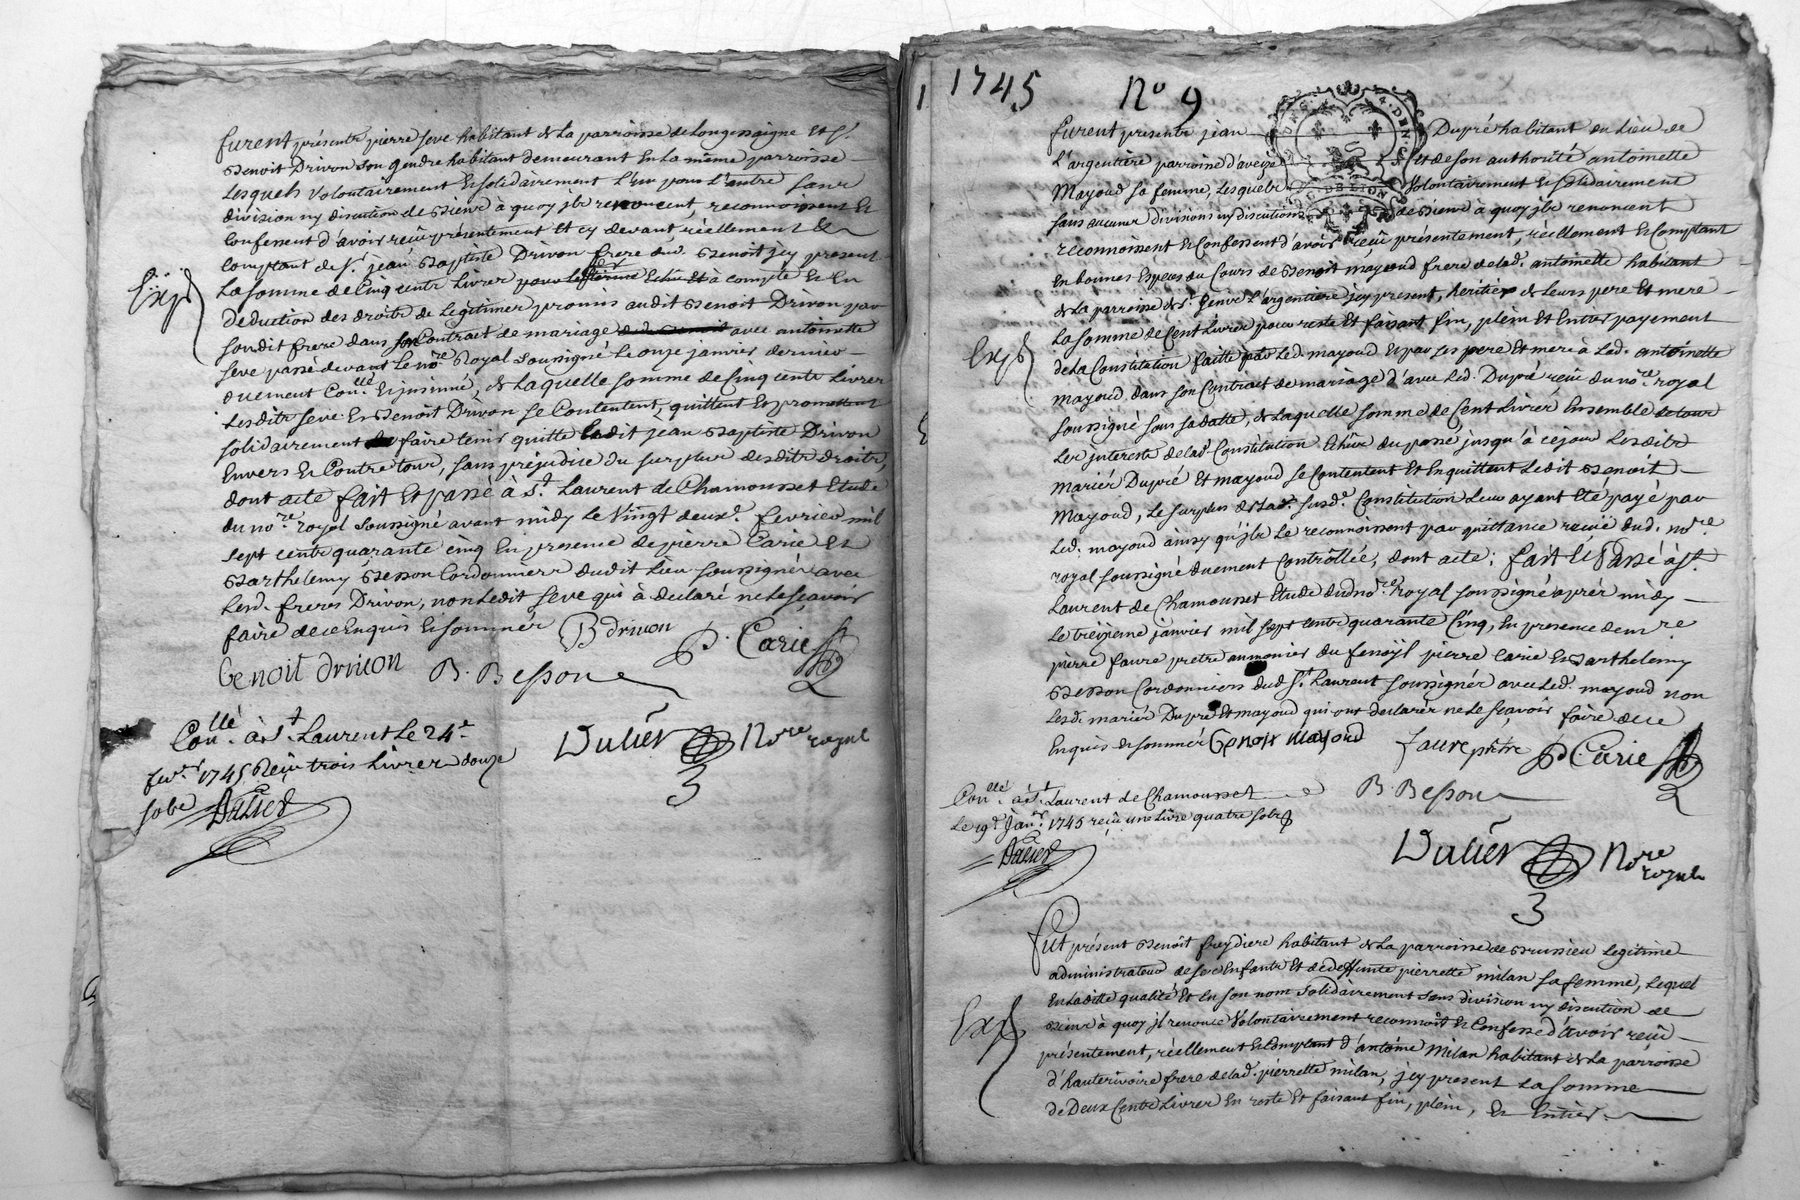 furent présents pierre seve habitant de La parroisse de Longessaigne et Sr.
Benoit Drivon son gendre habitant demeurant En La même parroisse
Lesquels volontairement et solidairement L'un pour L'autre sans
division ny discution de Biens à quoy jls renoncent, reconnoissent et
Confessent d'avoir reçû présentement et cy devant réellement &
Comptant de Sr. jean Baptiste Drivon frere dud. Benoit jcy present
La somme de Cinq cents Livres à compte et En
Deduction des droits de Legitimes promis audit Benoit Drivon par
sondit frere dans son Contrat de mariage avec antoinette
seve passé devant Le nore. Royal soussigné Le onze janvier dernier
duement Conllé. Et jnsinué, de Laquelle somme de Cinq cents Livres
Lesdits seve et Benoit Drivon se Contentent, quittent Et promettent
solidairement faire tenir quitte Ledit jean Baptiste Drivon
Envers et Contre tous, sans préjudice du surplus desdits droits,
dont acte fait Et passé à St. Laurent de Chamousset Etude
du nore. royal soussigné avant midy Le Vingt deuxe. fevrier mil
sept cents quarante cinq En presence de pierre Carie et
Barthelemy Besson Cordonniers dudit Lieu soussignés avec
Lesd. freres Drivon, non Ledit seve qui à déclaré ne Le sçavoir
faire de ce Enquis et sommé
B drivon
P. Carie
Benoit drivon
B. Besson
Exp
Conllé. à St. Laurent Le 24e.
fevr. 1745 Reçu trois Livres douze
sols
Dulier
Dulier Nore royal
3
1745
No 9
furent presents jean Dupré habitant du Lieu de
L'argentiere parroisse d'aveize Et de son authorité antoinette
Mayoud sa femme, Lesquels Volontairement et solidairement
sans aucune divisions ny discutions de Biens à quoy jls renoncent
reconnoissent et Confessent d'avoir reçû présentement, reellement et Comptant
En bonnes Especes du Cours de Benoit mayoud frere de Lad. antoinette habitant
de La parroisse de St. Genis L'argentiere jcy present, heritier de Leurs pere Et mere
La somme de Cent Livres pour reste Et faisant fin, plein Et Entier payement
de La Constitution faitte par Led. mayoud et par ses pere Et mere à Lad. antoinette
mayoud dans son Contrat de mariage d'avec Led. Dupré reçû du nore. royal
soussigné sous sa datte, de Laquelle somme de Cent Livres Ensemble de tous
Les jnterets de Lad. Constitution Echûs du passé jusqu'à ce jour Lesdits
Mariés Dupré Et mayoud se Contentent Et En quittent Ledit Benoit
Mayoud, Le surplus de Lad. susde. Constitution Leur ayant Eté payé par
Led. mayoud ainsy qu'jls Le reconnoissent par quittance reçüe dud. nore.
royal soussigné duement Controllée, dont acte; fait Et Passé à St.
Laurent de Chamousset Etude dud nore. royal soussigné aprés midy
Le treizieme janvier mil sept cents quarante Cinq, En presence de mre.
pierre faure pretre aumonier du fenoÿl pierre Carie et Barthelemy
Besson Cordonniers dud St. Laurent soussignés avec Led. mayoud non
Lesd. mariés Dupré Et mayoud qui ont declarés ne Le sçavoir faire de ce
Enquis et sommés Benoit Mayoud
faure prêtre
P Carie
B. Besson
Exp
Conllé. à St. Laurent de Chamousset
Le 19e. Janr. 1745 reçû une Livre quatre sols
Dulier
Dulier Nore royal
3
Fut présent Benoit freydiere habitant de La parroisse de Brussieu Legitime
administrateur de ses Enfants Et de deffunte pierrette milan sa femme, Lequel
En Laditte qualité Et En son nom solidairement sans division ny discution de
Biens à quoy jl renonce Volontairement reconnoît et Confesse d'avoir reçû
présentement, réellement et Comptant d'antoine Milan habitant de La parroisse
d'hauterivoire frere de Lad. pierrette milan, jcy present La somme
de Deux Cents Livres En reste Et faisant fin, plein, et Entier
Exp